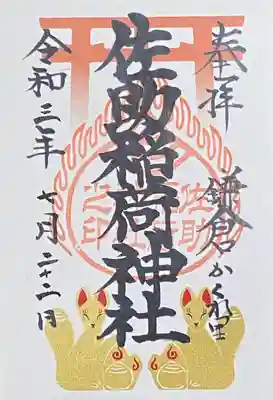 奉拝
鎌倉かくれ里
佐助稲荷神社
令和三年 七月二十二日
佐助
之印